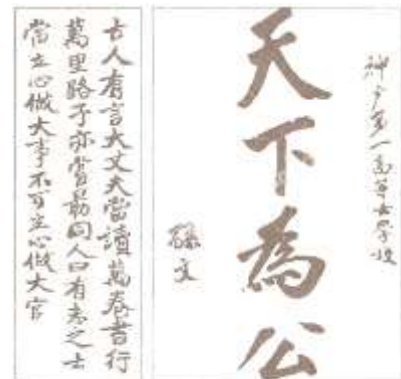 神戶第一高等女學校
天下為公
孫文
古人有言大丈夫當讀萬卷書行
萬里路予亦嘗勗同人曰有志之士
當立心做大事不可立心做大官